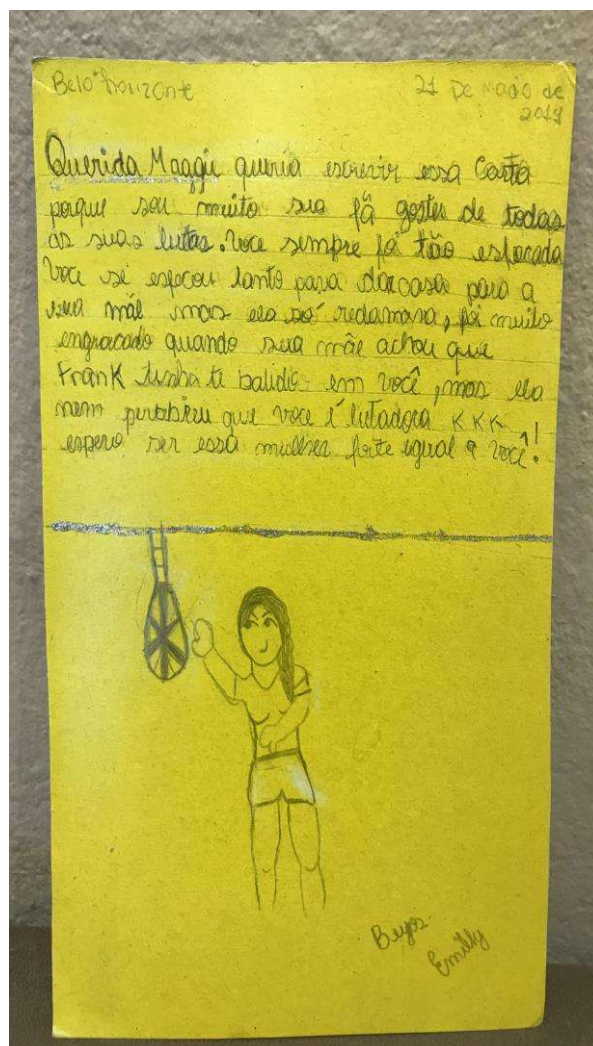 Belo horizonte 21 De Maio de
2019
Querida Maggie queria escrevir essa Carta
porque sou muito sua fã gostei de todas
as suas lutas. Voce sempre foi tão esforcada
Voce se esforcou tanto para dar casa para a
sua mãe mas ela só reclamava, foi muito
engracado quando sua mãe achou que
Frank tinha te batido em você, mas ela
nem percebeu que voce é lutadora KKK
espero ser essa mulher forte igual a você!
Beijos
Emilly